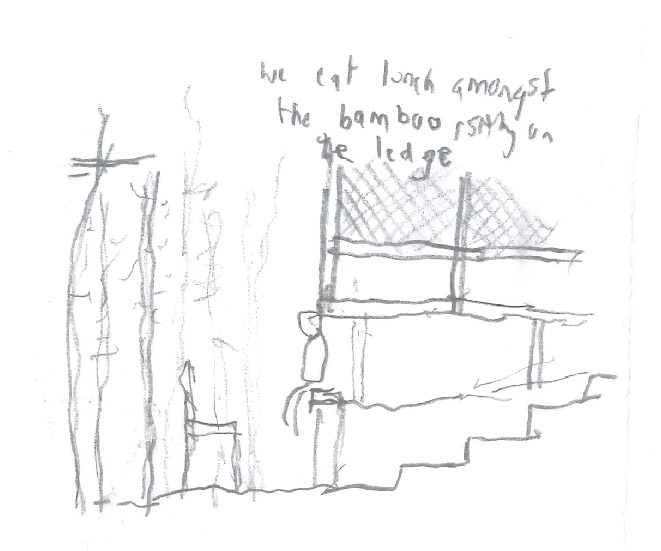 we eat lunch amongst
the bamboo sitting on
the ledge